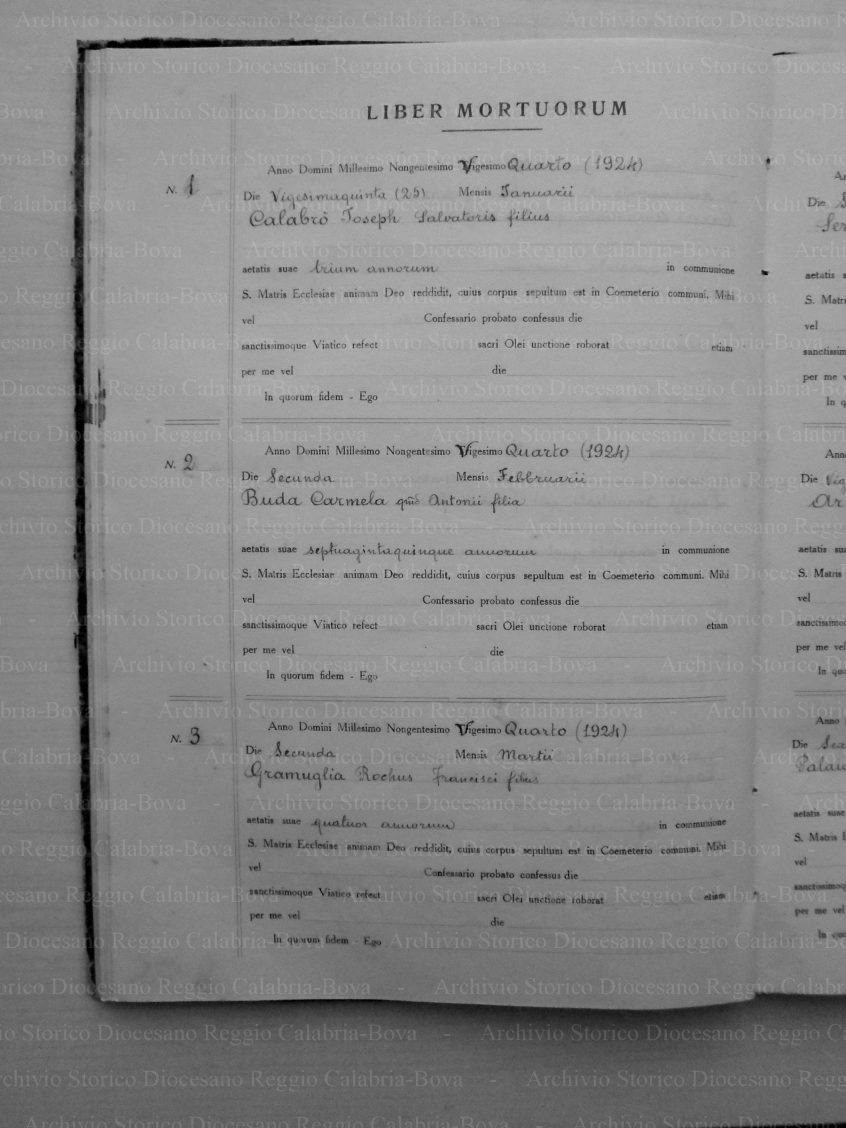 LIBER MORTUORUM
N. 1
Anno Domini Millesimo Nongentesimo Vigesimo Quarto (1924)
Die Vigesimaquinta (25) Mensis Januarii
Calabrò Joseph Salvatoris filius
aetatis suae trium annorum in communione
S. Matris Ecclesiae animam Deo reddidit, cuius corpus sepultum est in Coemeterio communi. Mihi
vel Confessario probato confessus die
sanctissimoque Viatico refect sacri Olei unctione roborat etiam
per me vel die
In quorum fidem - Ego
N. 2
Anno Domini Millesimo Nongentesimo Vigesimo Quarto (1924)
Die Secunda Mensis Febbruarii
Buda Carmela qm Antonii filia
aetatis suae septuagintaquinque annorum in communione
S. Matris Ecclesiae animam Deo reddidit, cuius corpus sepultum est in Coemeterio communi. Mihi
vel Confessario probato confessus die
sanctissimoque Viatico refect sacri Olei unctione roborat etiam
per me vel die
In quorum fidem - Ego
N. 3
Anno Domini Millesimo Nongentesimo Vigesimo Quarto (1924)
Die Secunda Mensis Martii
Gramuglia Rochus Francisci filius
aetatis suae quatuor annorum in communione
S. Matris Ecclesiae animam Deo reddidit, cuius corpus sepultum est in Coemeterio communi. Mihi
vel Confessario probato confessus die
sanctissimoque Viatico refect sacri Olei unctione roborat etiam
per me vel die
In quorum fidem - Ego